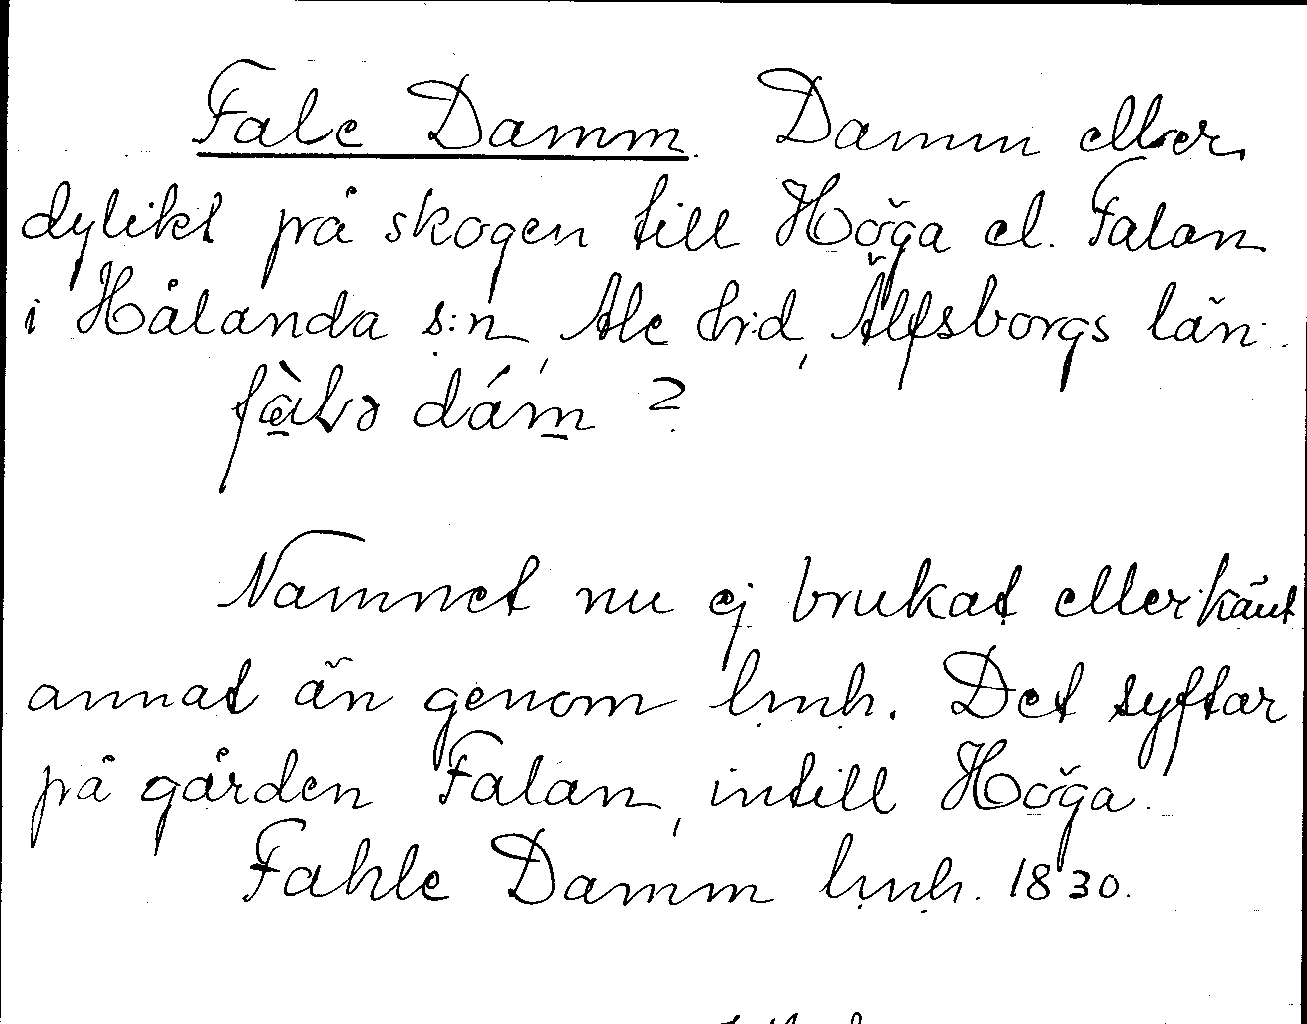 Fale Damm. Damm eller
dylikt på skogen till Höga el. Falan
i Hålanda s:n, Ale h:d, Älfsborgs län.
dám ?
Namnet nu ej brukat eller känt
annat än genom lmh. Det syftar
på gården Falan, intill Höga.
Fahle Damm lmh. 1830.